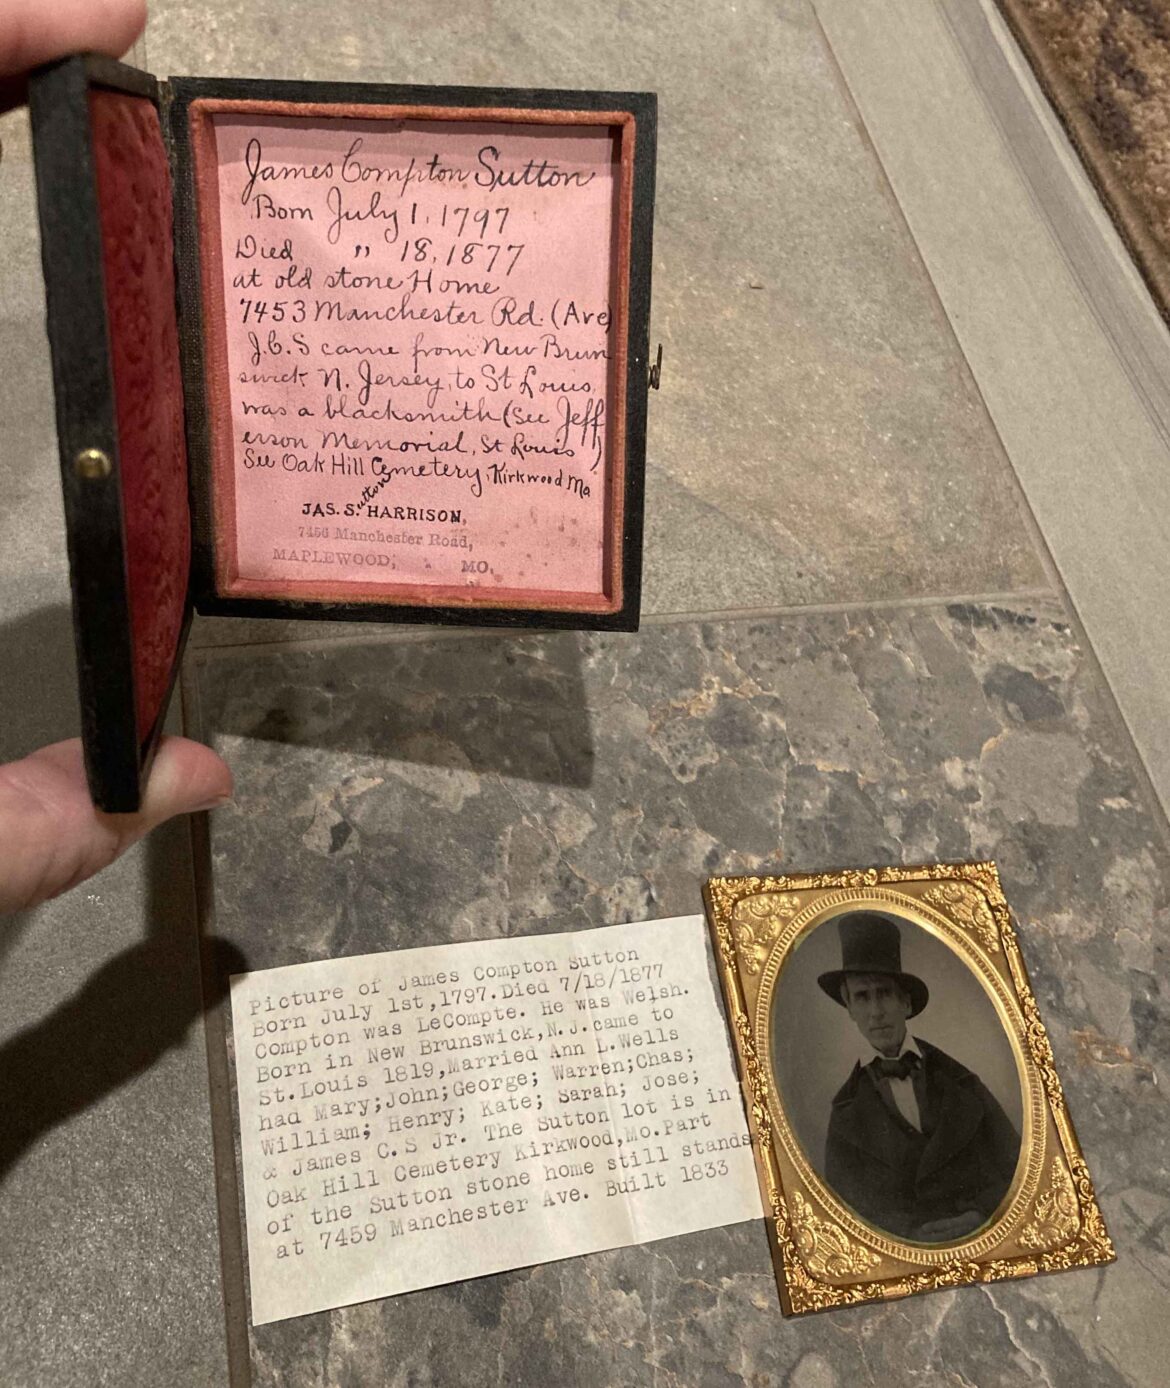 James Compton Sutton
Born July 1, 1797
Died " 18, 1877
at old stone Home
7453 Manchester Rd. (Ave)
J.C.S came from New Brun
swick N. Jersey, to St Louis,
was a blacksmith (See Jeff
erson Memorial, St Louis)
See Oak Hill Cemetery, Kirkwood Mo
JAS. S. utton HARRISON,
7456 Manchester Road,
MAPLEWOOD, MO.
Picture of James Compton Sutton
Born July 1st,1797.Died 7/18/1877
Compton was LeCompte. He was Welsh.
Born in New Brunswick,N.J.came to
St.Louis 1819,Married Ann L.Wells
had Mary;John;George; Warren;Chas;
William; Henry; Kate; Sarah; Jose;
& James C.S Jr. The Sutton lot is in
Oak Hill Cemetery Kirkwood,Mo.Part
of the Sutton stone home still stands
at 7459 Manchester Ave. Built 1833